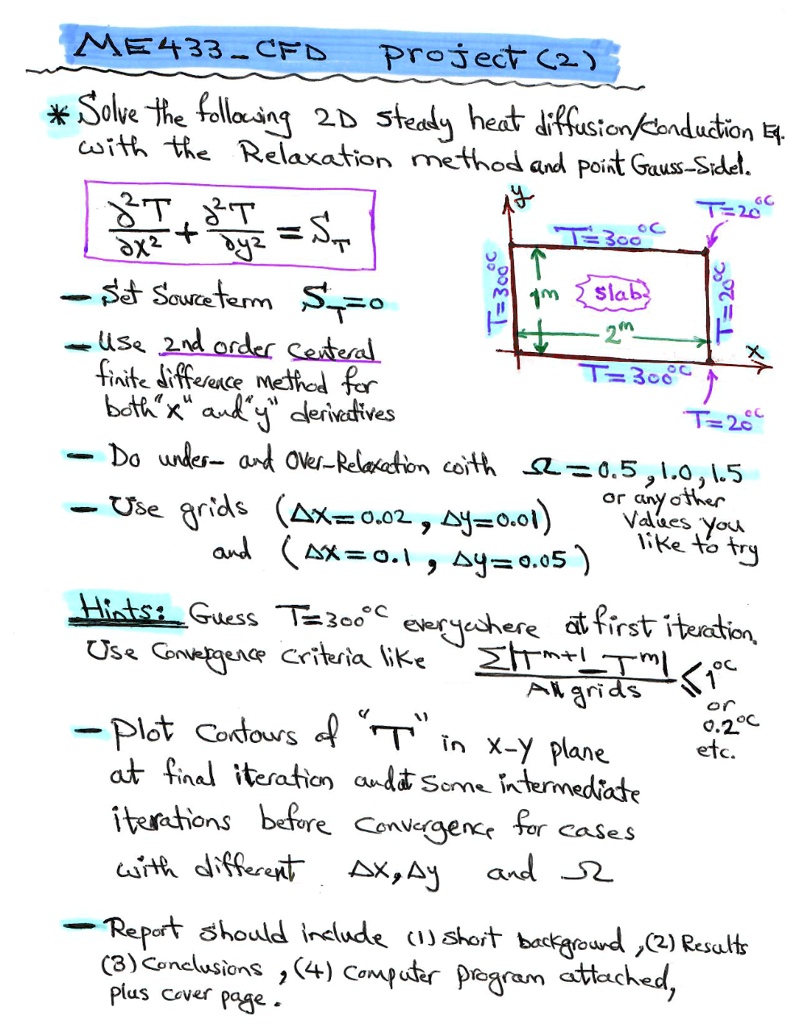 ME433_CFD project (2)
* Solve the following 2D steady heat diffusion/Conduction Eq.
with the Relaxation method and point Gauss-Sidel.
∂²T/∂x² + ∂²T/∂y² = S_T
y
T=20°C
T=300°C
T=300°C
1m
slab
T=20°C
2m
x
T=300°C
T=20°C
- Set Source term S_T=0
- Use 2nd order Centeral
finite difference method for
both "x" and "y" derivatives
- Do under- and Over-Relaxation with Ω = 0.5, 1.0, 1.5
or any other
values you
like to try
- Use grids (Δx=0.02, Δy=0.01)
and (Δx=0.1, Δy=0.05)
Hints: Guess T=300°C everywhere at first iteration.
Use Convergence Criteria like Σ|T^m+1 - T^m| / All grids ≤ 1°C
or
0.2°C
etc.
- Plot Contours of "T" in x-y plane
at final iteration and at Some intermediate
iterations before Convergence for cases
with different Δx, Δy and Ω
- Report should include (1) short background, (2) Results
(3) Conclusions, (4) Computer program attached,
plus cover page.